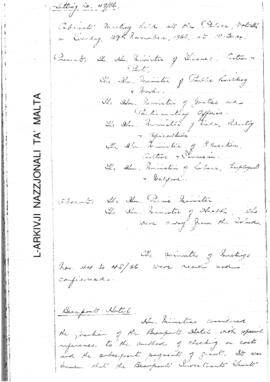 Meeting No. 49/66
Cabinet Meeting held at the Palace, Valletta
on 29th November, 1966, at 10.
Present: The Hon. Minister of Finance, Customs &
Port.
The Hon. Minister of Public Building
& Works.
The Hon. Minister of Justice and
Parliamentary Affairs.
The Hon. Minister of Trade, Industry
& Agriculture
The Hon. Minister of Education,
Culture & Tourism.
The Hon. Minister of Labour, Employment
& Welfare.
Absent: The Hon. Prime Minister
The Hon. Minister of Health. who
were away from the Island.
The minutes of Meetings
Nos 44 to 48/66 were read and
confirmed.
Hotel
Hon. Ministers considered
the position of the Hotel with special
reference to the method of checking on costs
and the subsequent payment of grant. It was
that the
L-ARKIVJI NAZZJONALI TA' MALTA